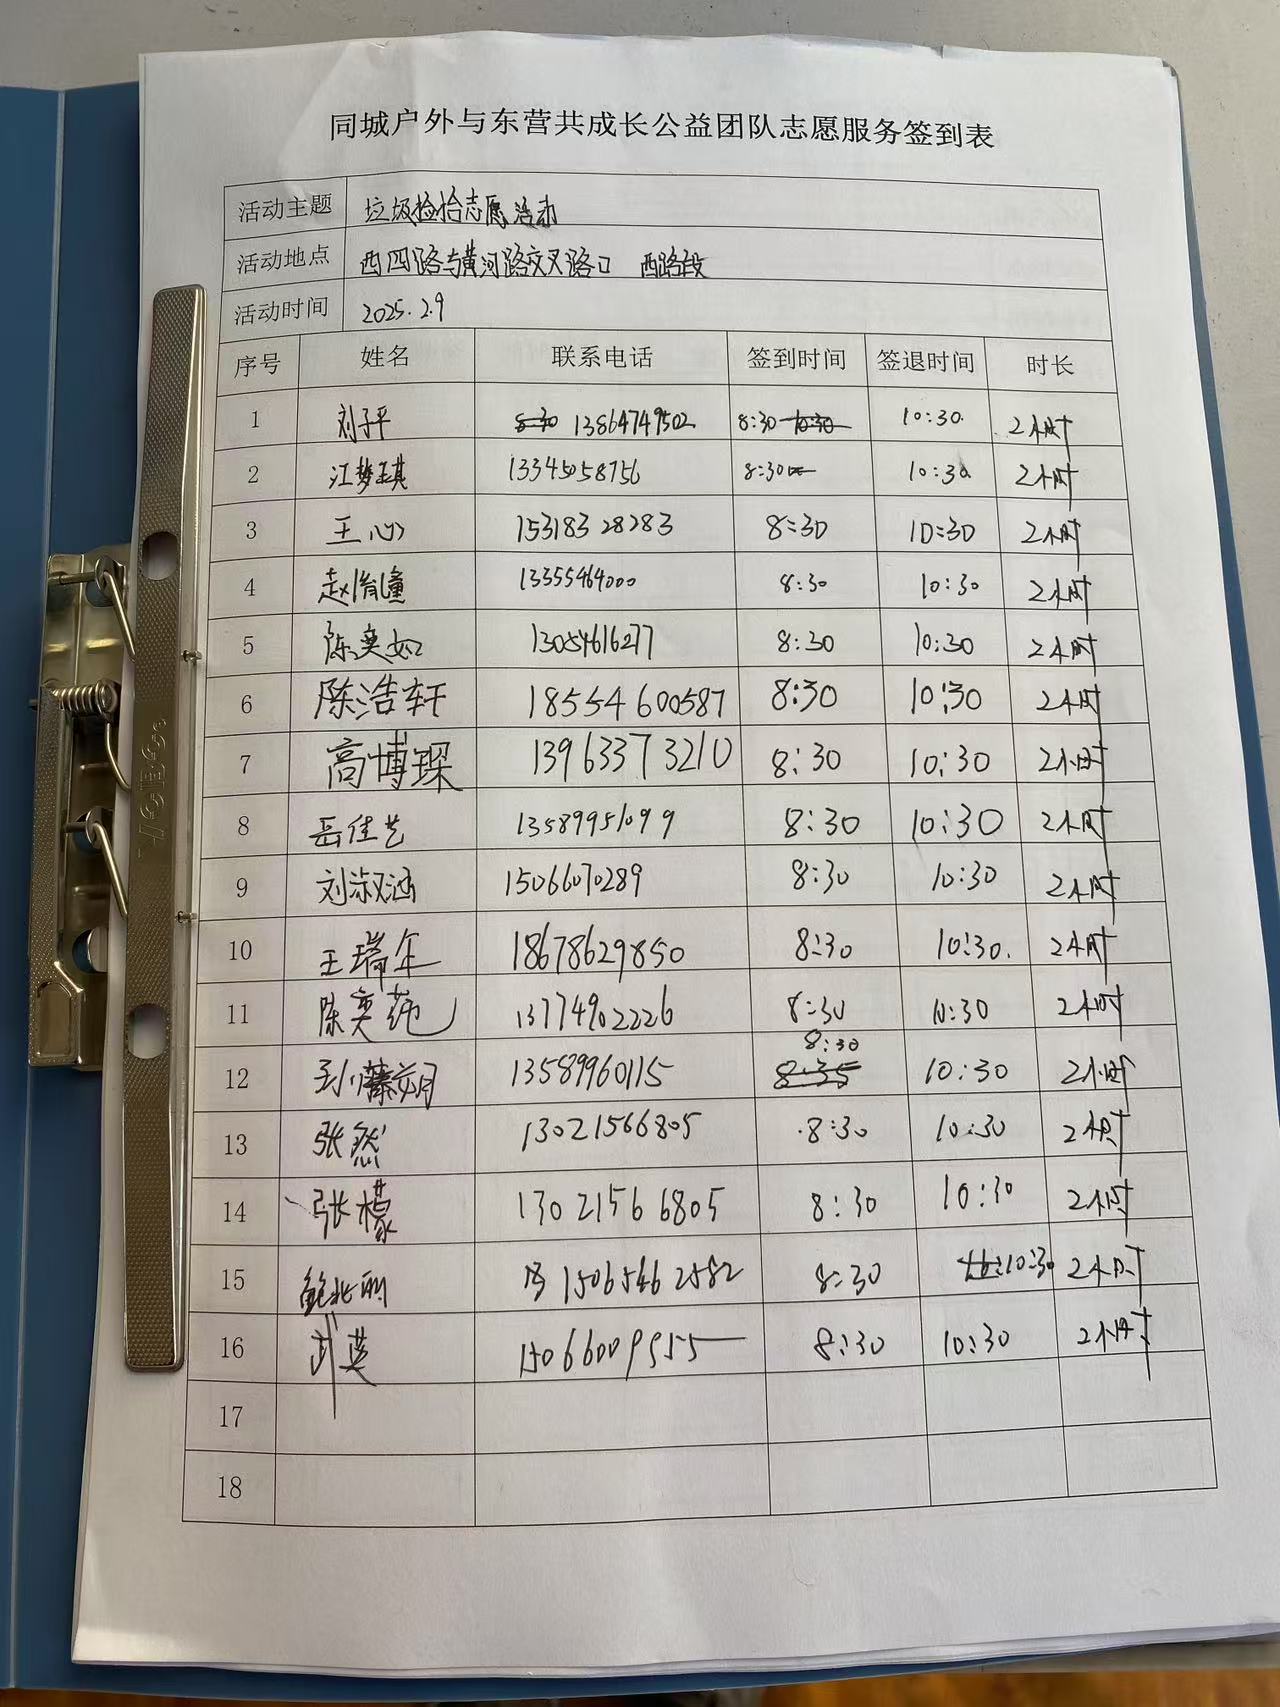 同城户外与东营共成长公益团队志愿服务签到表
活动主题 垃圾检拾志愿活动
活动地点 西四路与黄河路交叉路口 西路段
活动时间 2025.2.9
序号 姓名 联系电话 签到时间 签退时间 时长
1 刘子平 13864749502 8:30 10:30 2小时
2 江梦琪 13345058756 8:30 10:30 2小时
3 王心 15318328283 8:30 10:30 2小时
4 赵 13355464000 8:30 10:30 2小时
5 陈奕如 13054616277 8:30 10:30 2小时
6 陈浩轩 18554600587 8:30 10:30 2小时
7 高博琛 13963373210 8:30 10:30 2小时
8 岳佳艺 13589951099 8:30 10:30 2小时
9 刘淑涵 15066070289 8:30 10:30 2小时
10 王瑞年 18678629850 8:30 10:30. 2小时
11 陈奕莼 13774902226 8:30 10:30 2小时
12 13589960115 8:30 10:30 2小时
13 张然 13021566805 8:30 10:30 2小时
14 张檬 13021566805 8:30 10:30 2小时
15 鲍北丽 15065462582 8:30 10:30 2小时
16 武英 15066009555 8:30 10:30 2小时
17
18